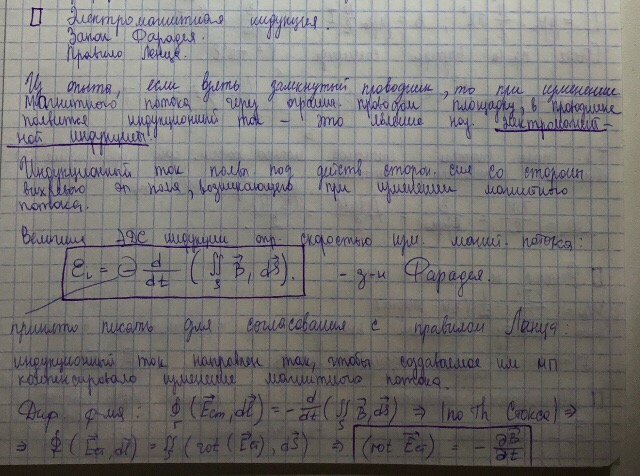 Электромагнитная индукция.
Закон Фарадея.
Правило Ленца.
Из опыта, если взять замкнутый проводник, то при изменение
магнитного потока через огранич. проводом площадку, в проводнике
появится индукционный ток – это явление наз. электромагнит-
ной индукции.
Индукционный ток появл. под действ. сторон. сил со стороны
вихревого эл поля, возникающего при изменении магнитного
потока.
Величина ЭДС индукции опр. скоростью изм. магнит. потока:
Ei = ⊖ d/dt ( ∬_S B⃗, dS⃗ ). – з-н Фарадея.
принято писать для согласования с правилом Ленца:
индукционный ток направлен так, чтобы создаваемое им МП
компенсировало изменение магнитного потока.
Диф. ф-ма: ∮_Γ (E⃗ст, dl⃗) = – d/dt (∬_S B⃗, dS⃗) ⇒ |по Th Стокса| ⇒
⇒ ∮ (E⃗ст, dl⃗) = ∬ (rot (E⃗ст), dS⃗) ⇒ (rot E⃗ст) = – ∂B⃗/∂t